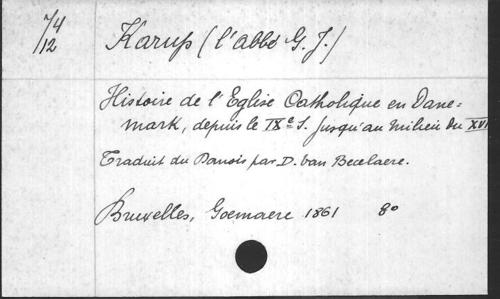 74/12
Karup (l'abbé G. J.)
Histoire de l'Eglise Catholique en Dane=
mark, depuis le IXe S. jusqu'au milieu du XVI
Traduit du Danois par D. van Becelaere.
Bruxelles, Goemaere 1861 8o